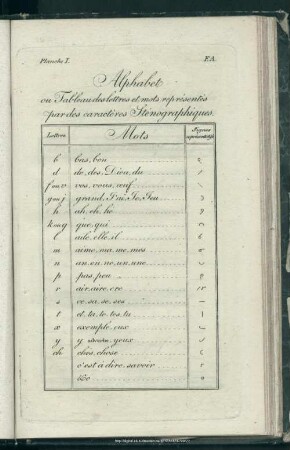 Planche I. EA.
Alphabet
ou Tableau des lettres et mots représentés
par des caractères Sténographiques.
Lettres Mots Signes
b bas, bon
d de, des, Dieu, du
f ou v vos, vous, neuf
g ou j grand, J'ai, Je, Jeu
h ah, eh, hé
k ou q que, qui
l elle, il
m aime, ma, me, mes
n an, en, ne, un, une
p pas, peu
r air, aire, ere
s ve, sa, se, ses
t et, ta, te, tes, tu
x exemple, eux
y y yeux
ch ches, chose
c'est à dire, savoir
&c